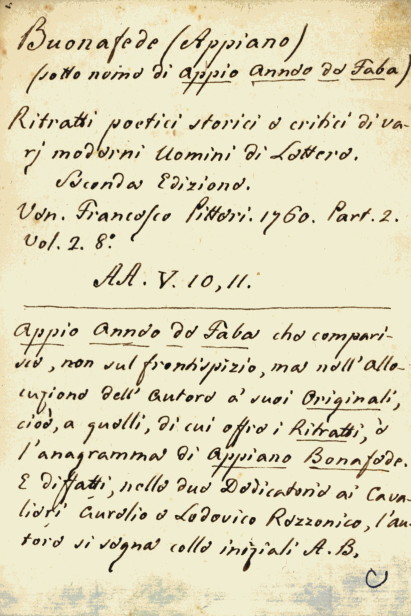 Buonafede (Appiano)
(sotto nome di Appio Anneo de Faba)
Ritratti poetici storici e critici di va-
rj moderni Uomini di Lettere.
Seconda Edizione.
Ven. Francesco Pitteri. 1760. Part. 2.
Vol. 2. 8.°
AA. V. 10, 11.
Appio Anneo de Faba che compari-
sce, non sul frontispizio, ma nell'Allo-
cuzione dell'Autore a' suoi Originali,
cioè, a quelli, di cui offre i Ritratti, è
l'anagramma di Appiano Bonafede.
E diffatti, nelle due Dedicatorie ai Cava-
lieri Aurelio e Lodovico Rezzonico, l'au-
tore si segna colle iniziali A. B.